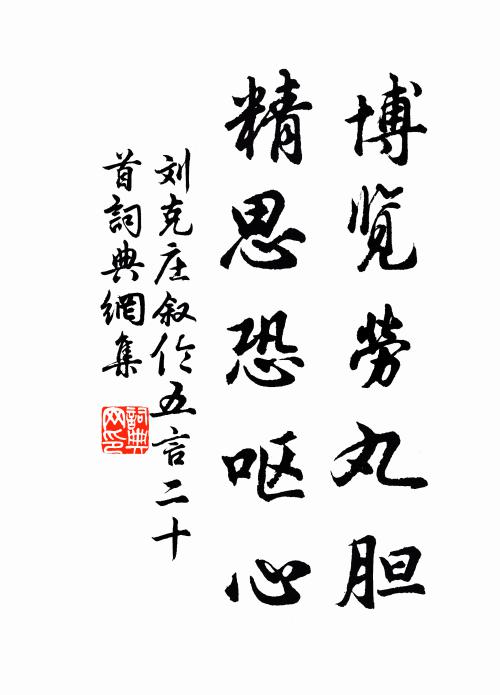 博览勞丸胆
精思恐呕心
刘克庄叙伦五言二十
首詞典網集
詞典
网印